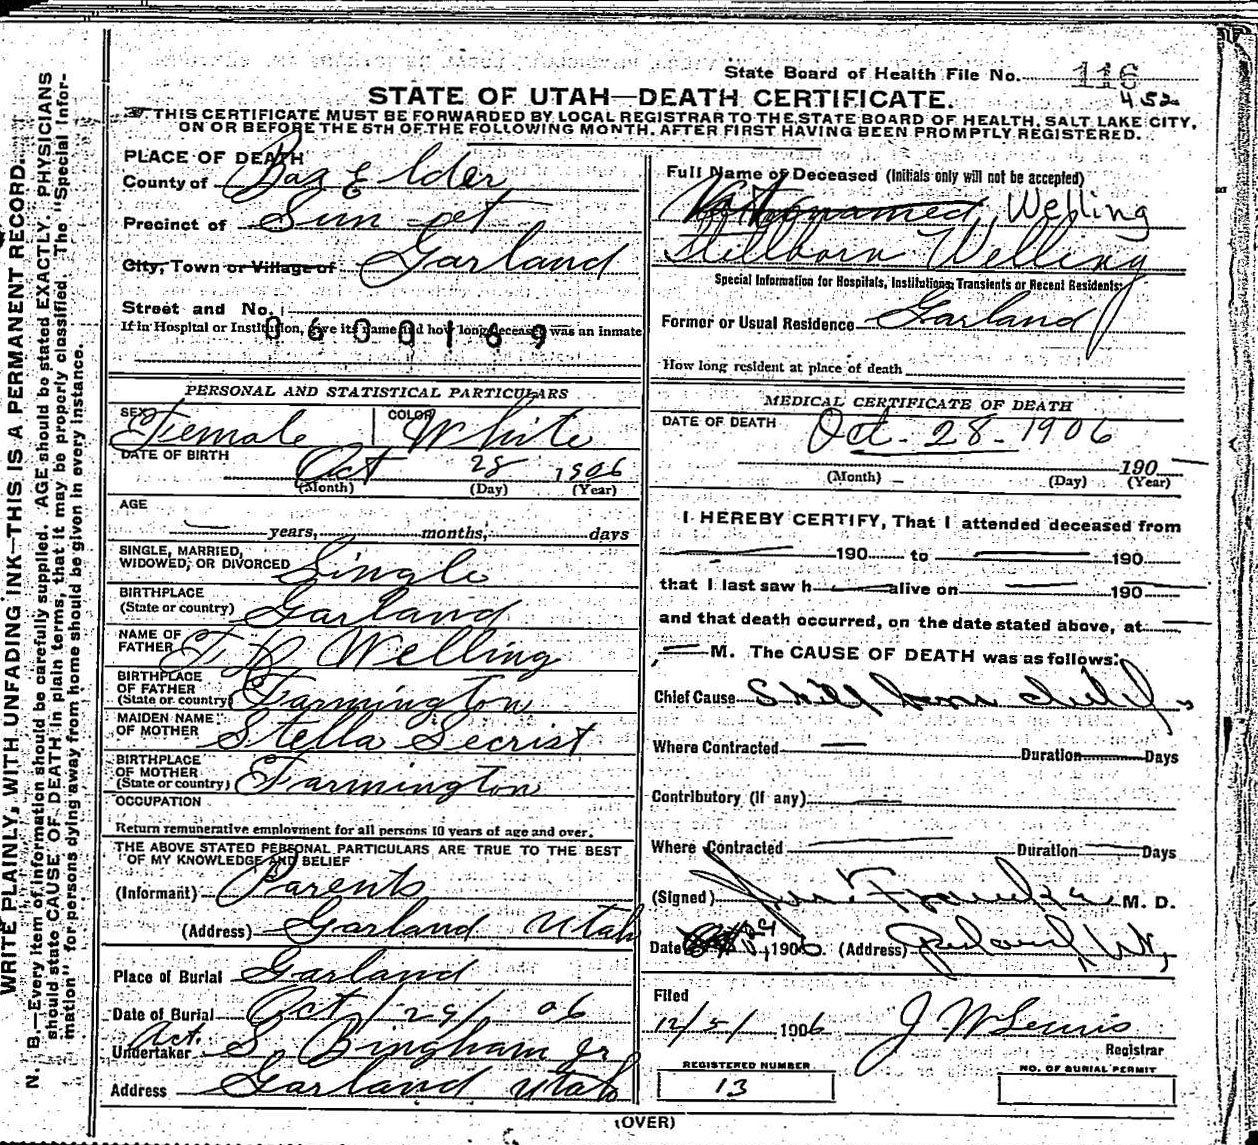 State Board of Health File No. 116
452
STATE OF UTAH—DEATH CERTIFICATE.
THIS CERTIFICATE MUST BE FORWARDED BY LOCAL REGISTRAR TO THE STATE BOARD OF HEALTH, SALT LAKE CITY,
ON OR BEFORE THE 5TH OF THE FOLLOWING MONTH, AFTER FIRST HAVING BEEN PROMPTLY REGISTERED.
PLACE OF DEATH
County of Box Elder
Precinct of Sun set
City, Town or Village of Garland
Street and No.
If in Hospital or Institution, give its name and how long deceased was an inmate
0600169
PERSONAL AND STATISTICAL PARTICULARS
SEX Female COLOR White
DATE OF BIRTH Oct 28 1906
(Month) (Day) (Year)
AGE
years, months, days
SINGLE, MARRIED,
WIDOWED, OR DIVORCED Single
BIRTHPLACE
(State or country) Garland
NAME OF
FATHER Welling
BIRTHPLACE
OF FATHER
(State or country) Farmington
MAIDEN NAME
OF MOTHER Stella Secrist
BIRTHPLACE
OF MOTHER
(State or country) Farmington
OCCUPATION
Return remunerative employment for all persons 10 years of age and over.
THE ABOVE STATED PERSONAL PARTICULARS ARE TRUE TO THE BEST
OF MY KNOWLEDGE AND BELIEF
(Informant) Parents
(Address) Garland Utah
Place of Burial Garland
Date of Burial Oct / 29 / 06
Act.
Undertaker S. Bingham Jr
Address Garland Utah
Full Name of Deceased (Initials only will not be accepted)
unnamed Welling
Stillborn Welling
Special Information for Hospitals, Institutions, Transients or Recent Residents:
Former or Usual Residence Garland
How long resident at place of death
MEDICAL CERTIFICATE OF DEATH
DATE OF DEATH Oct. 28-1906
190
(Month) (Day) (Year)
I HEREBY CERTIFY, That I attended deceased from
190 to 190
that I last saw h alive on 190
and that death occurred, on the date stated above, at
M. The CAUSE OF DEATH was as follows:
Chief Cause Still born child
Where Contracted Duration Days
Contributory (if any)
Where Contracted Duration Days
(Signed) M. D.
Date 1906. (Address)
Filed
12/5/ 1906 J W Lewis
Registrar
REGISTERED NUMBER
13
NO. OF BURIAL PERMIT
(OVER)
WRITE PLAINLY, WITH UNFADING INK—THIS IS A PERMANENT RECORD.
N. B.—Every item of information should be carefully supplied. AGE should be stated EXACTLY. PHYSICIANS
should state CAUSE OF DEATH in plain terms, that it may be properly classified. The "Special Infor-
mation" for persons dying away from home should be given in every instance.